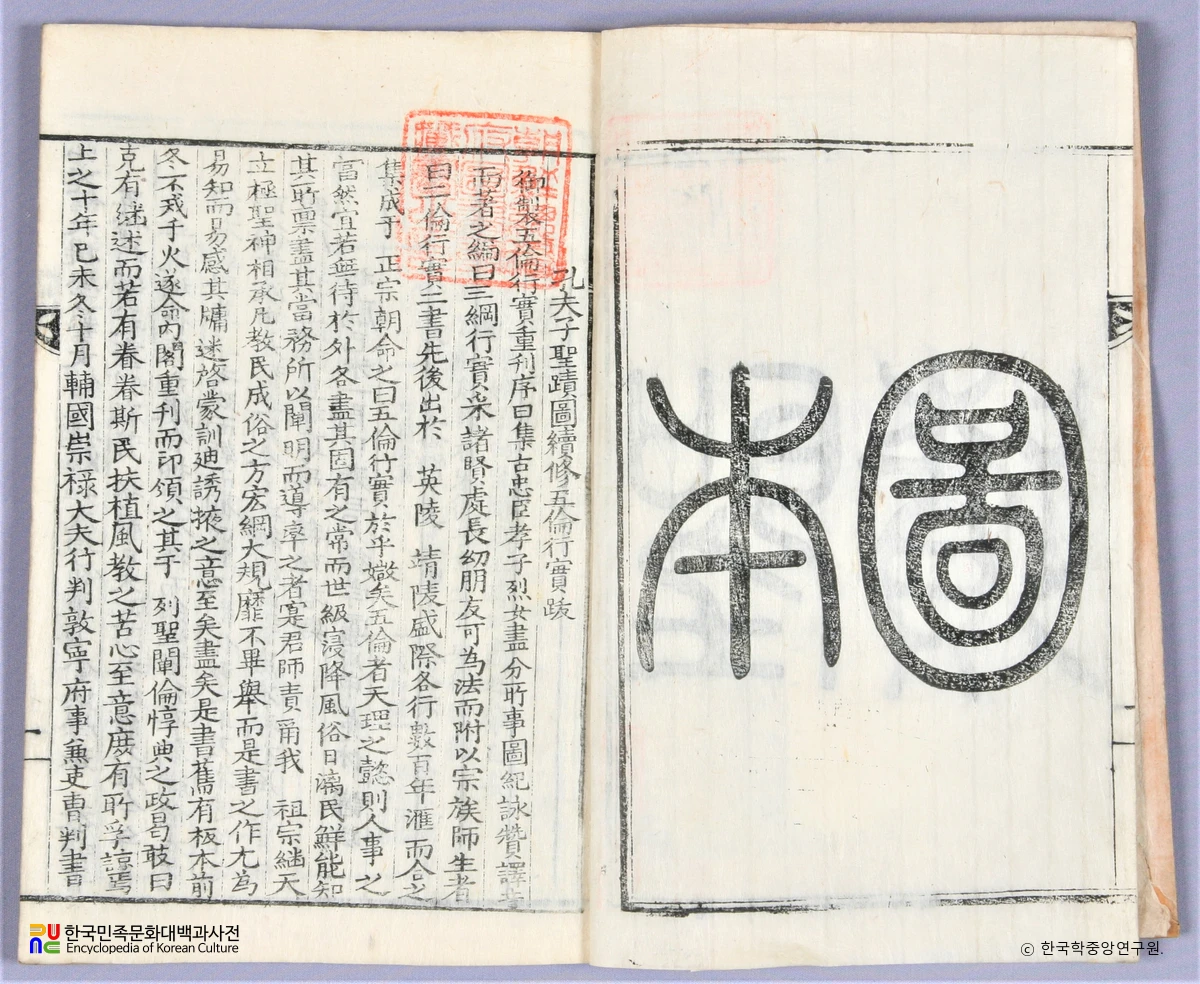 圖
本
孔夫子聖蹟圖續修五倫行實跋
御製五倫行實重刊序曰集古忠臣孝子烈女盡分所事圖紀詠贊譯
而著之編曰三綱行實采諸賢處長幼朋友可為法而附以宗族師生者
曰二倫行實二書先後出於 英陵 靖陵盛際各行數百年滙而合之
集成于 正宗朝命之曰五倫行實於乎媺矣五倫者天理之懿則人事之
當然宜若無待於外各盡其固有之常而世級寖降風俗日漓民鮮能知
其所禀盡其當務所以闡明而導率之者寔君師責爾我 祖宗繼天
立極聖神相承凡教民成俗之方宏綱大規靡不畢舉而是書之作尤為
易知而易感其牖迷啓蒙訓迪誘掖之意至矣盡矣是書舊有板本前
冬不戒于火遂命內閣重刊而印頒之其于 列聖闡倫惇典之政曷敢曰
克有繼述而若有眷眷斯民扶植風教之苦心至意庶有所孚諒焉
上之十年己未冬十月輔國崇祿大夫行判敦寧府事兼吏曹判書
한국민족문화대백과사전
Encyclopedia of Korean Culture
ⓒ 한국학중앙연구원.